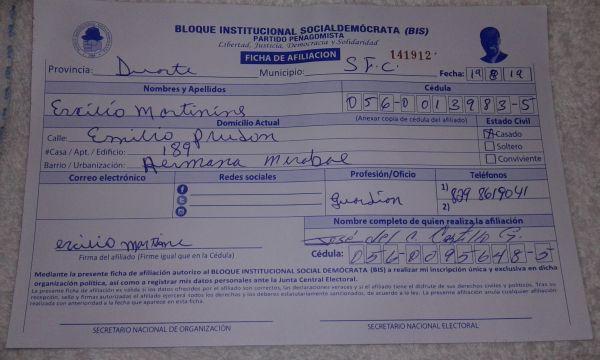 BLOQUE INSTITUCIONAL SOCIALDEMÓCRATA (BIS)
PARTIDO PEÑAGOMISTA
Libertad, Justicia, Democracia y Solidaridad
FICHA DE AFILIACION 141912
Provincia: Duarte Municipio: S.F.C. Fecha: 19 8 19
Nombres y Apellidos Cédula
Ercilio Martinins 056-0013983-5
Domicilio Actual (Anexar copia de cédula del afiliado) Estado Civil
Calle: Emilio Prudon Casado
#Casa / Apt. / Edificio: 189 Soltero
Barrio / Urbanización: Hermana Mirabal Conviviente
Correo electrónico Redes sociales Profesión/Oficio Teléfonos
Guardian 1) 829 8619041
2)
Nombre completo de quien realiza la afiliación
ercilio martine José del C. Castillo G.
Firma del afiliado (Firme igual que en la Cédula) Cédula: 056-0095648-5
Mediante la presente ficha de afiliación autorizo al BLOQUE INSTITUCIONAL SOCIAL DEMÓCRATA (BIS) a realizar mi inscripción única y exclusiva en dicha
organización política, así como a registrar mis datos personales ante la Junta Central Electoral.
La presente ficha de afiliación es válida si los datos ofrecidos por el afiliado son correctos, las declaraciones veraces y si el afiliado tiene el disfrute de sus derechos civiles y políticos. Tras su
recepción, sello y firmas autorizadas el afiliado ejercerá todos los derechos y los deberes estatutariamente sancionados, de acuerdo a la ley. La presente afiliación anula cualquier afiliación
realizada con anterioridad a la fecha que aparece en esta ficha.
SECRETARIO NACIONAL DE ORGANIZACIÓN SECRETARIO NACIONAL ELECTORAL